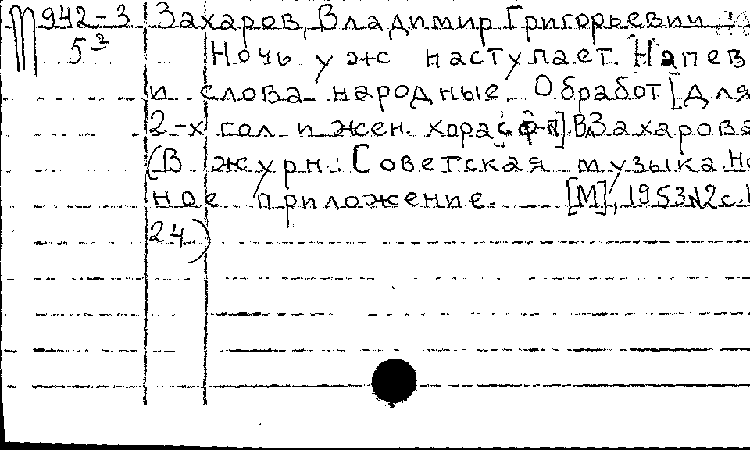 М942-3 Захаров, Владимир Григорьевич
5³ Ночь уж наступает. Напев
и слова народные. Обработ [для
2-х гол. и жен. хора с ф-п] В. Захарова
(В журн.: Советская музыка. Но
ное приложение. [М], 1953 №2 с.
24)